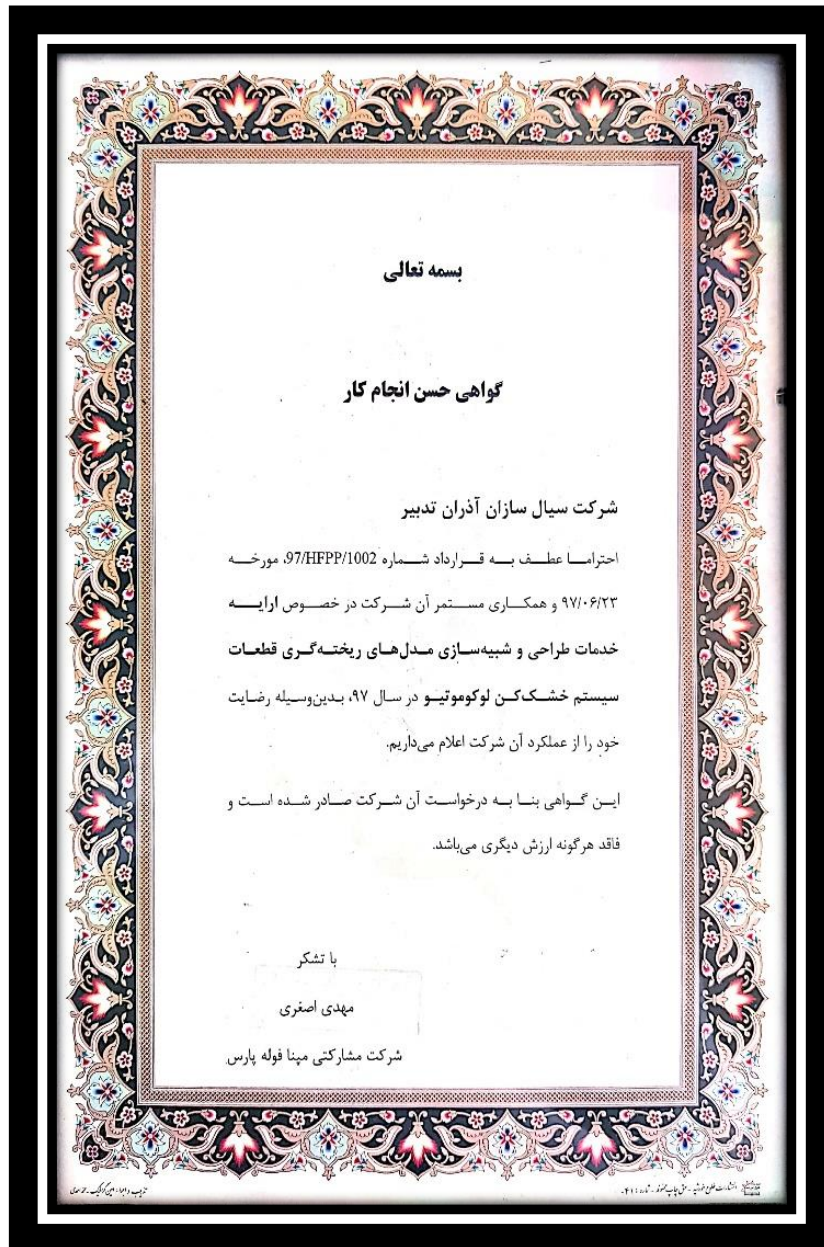 بسمه تعالی
گواهی حسن انجام کار
شرکت سیال سازان آذران تدبیر
احتراما عطف به قرارداد شماره 97/HFPP/1002، مورخه
۹۷/۰۶/۲۳ و همکاری مستمر آن شرکت در خصوص ارایه
خدمات طراحی و شبیه‌سازی مدل‌های ریخته‌گری قطعات
سیستم خشک‌کن لوکوموتیو در سال ۹۷، بدین‌وسیله رضایت
خود را از عملکرد آن شرکت اعلام می‌داریم.
این گواهی بنا به درخواست آن شرکت صادر شده است و
فاقد هرگونه ارزش دیگری می‌باشد.
با تشکر
مهدی اصغری
شرکت مشارکتی مپنا فوله پارس